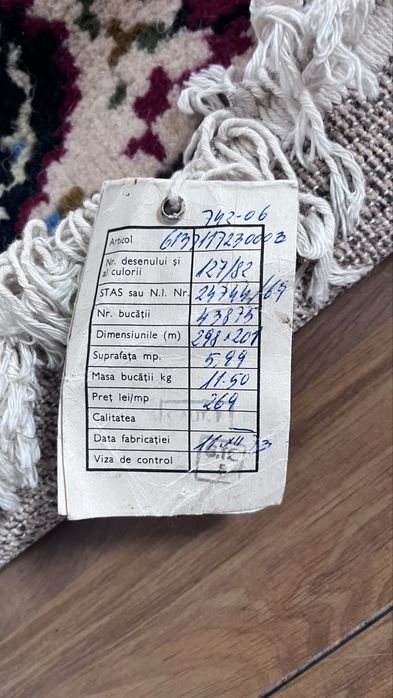 742-06
Articol 6137117230003
Nr. desenului și
al culorii 127/82
STAS sau N.I. Nr. 24744/69
Nr. bucății 43875
Dimensiunile (m) 298×201
Suprafața mp. 5,99
Masa bucății kg 11.50
Preț lei/mp 269
Calitatea
Data fabricației
Viza de control